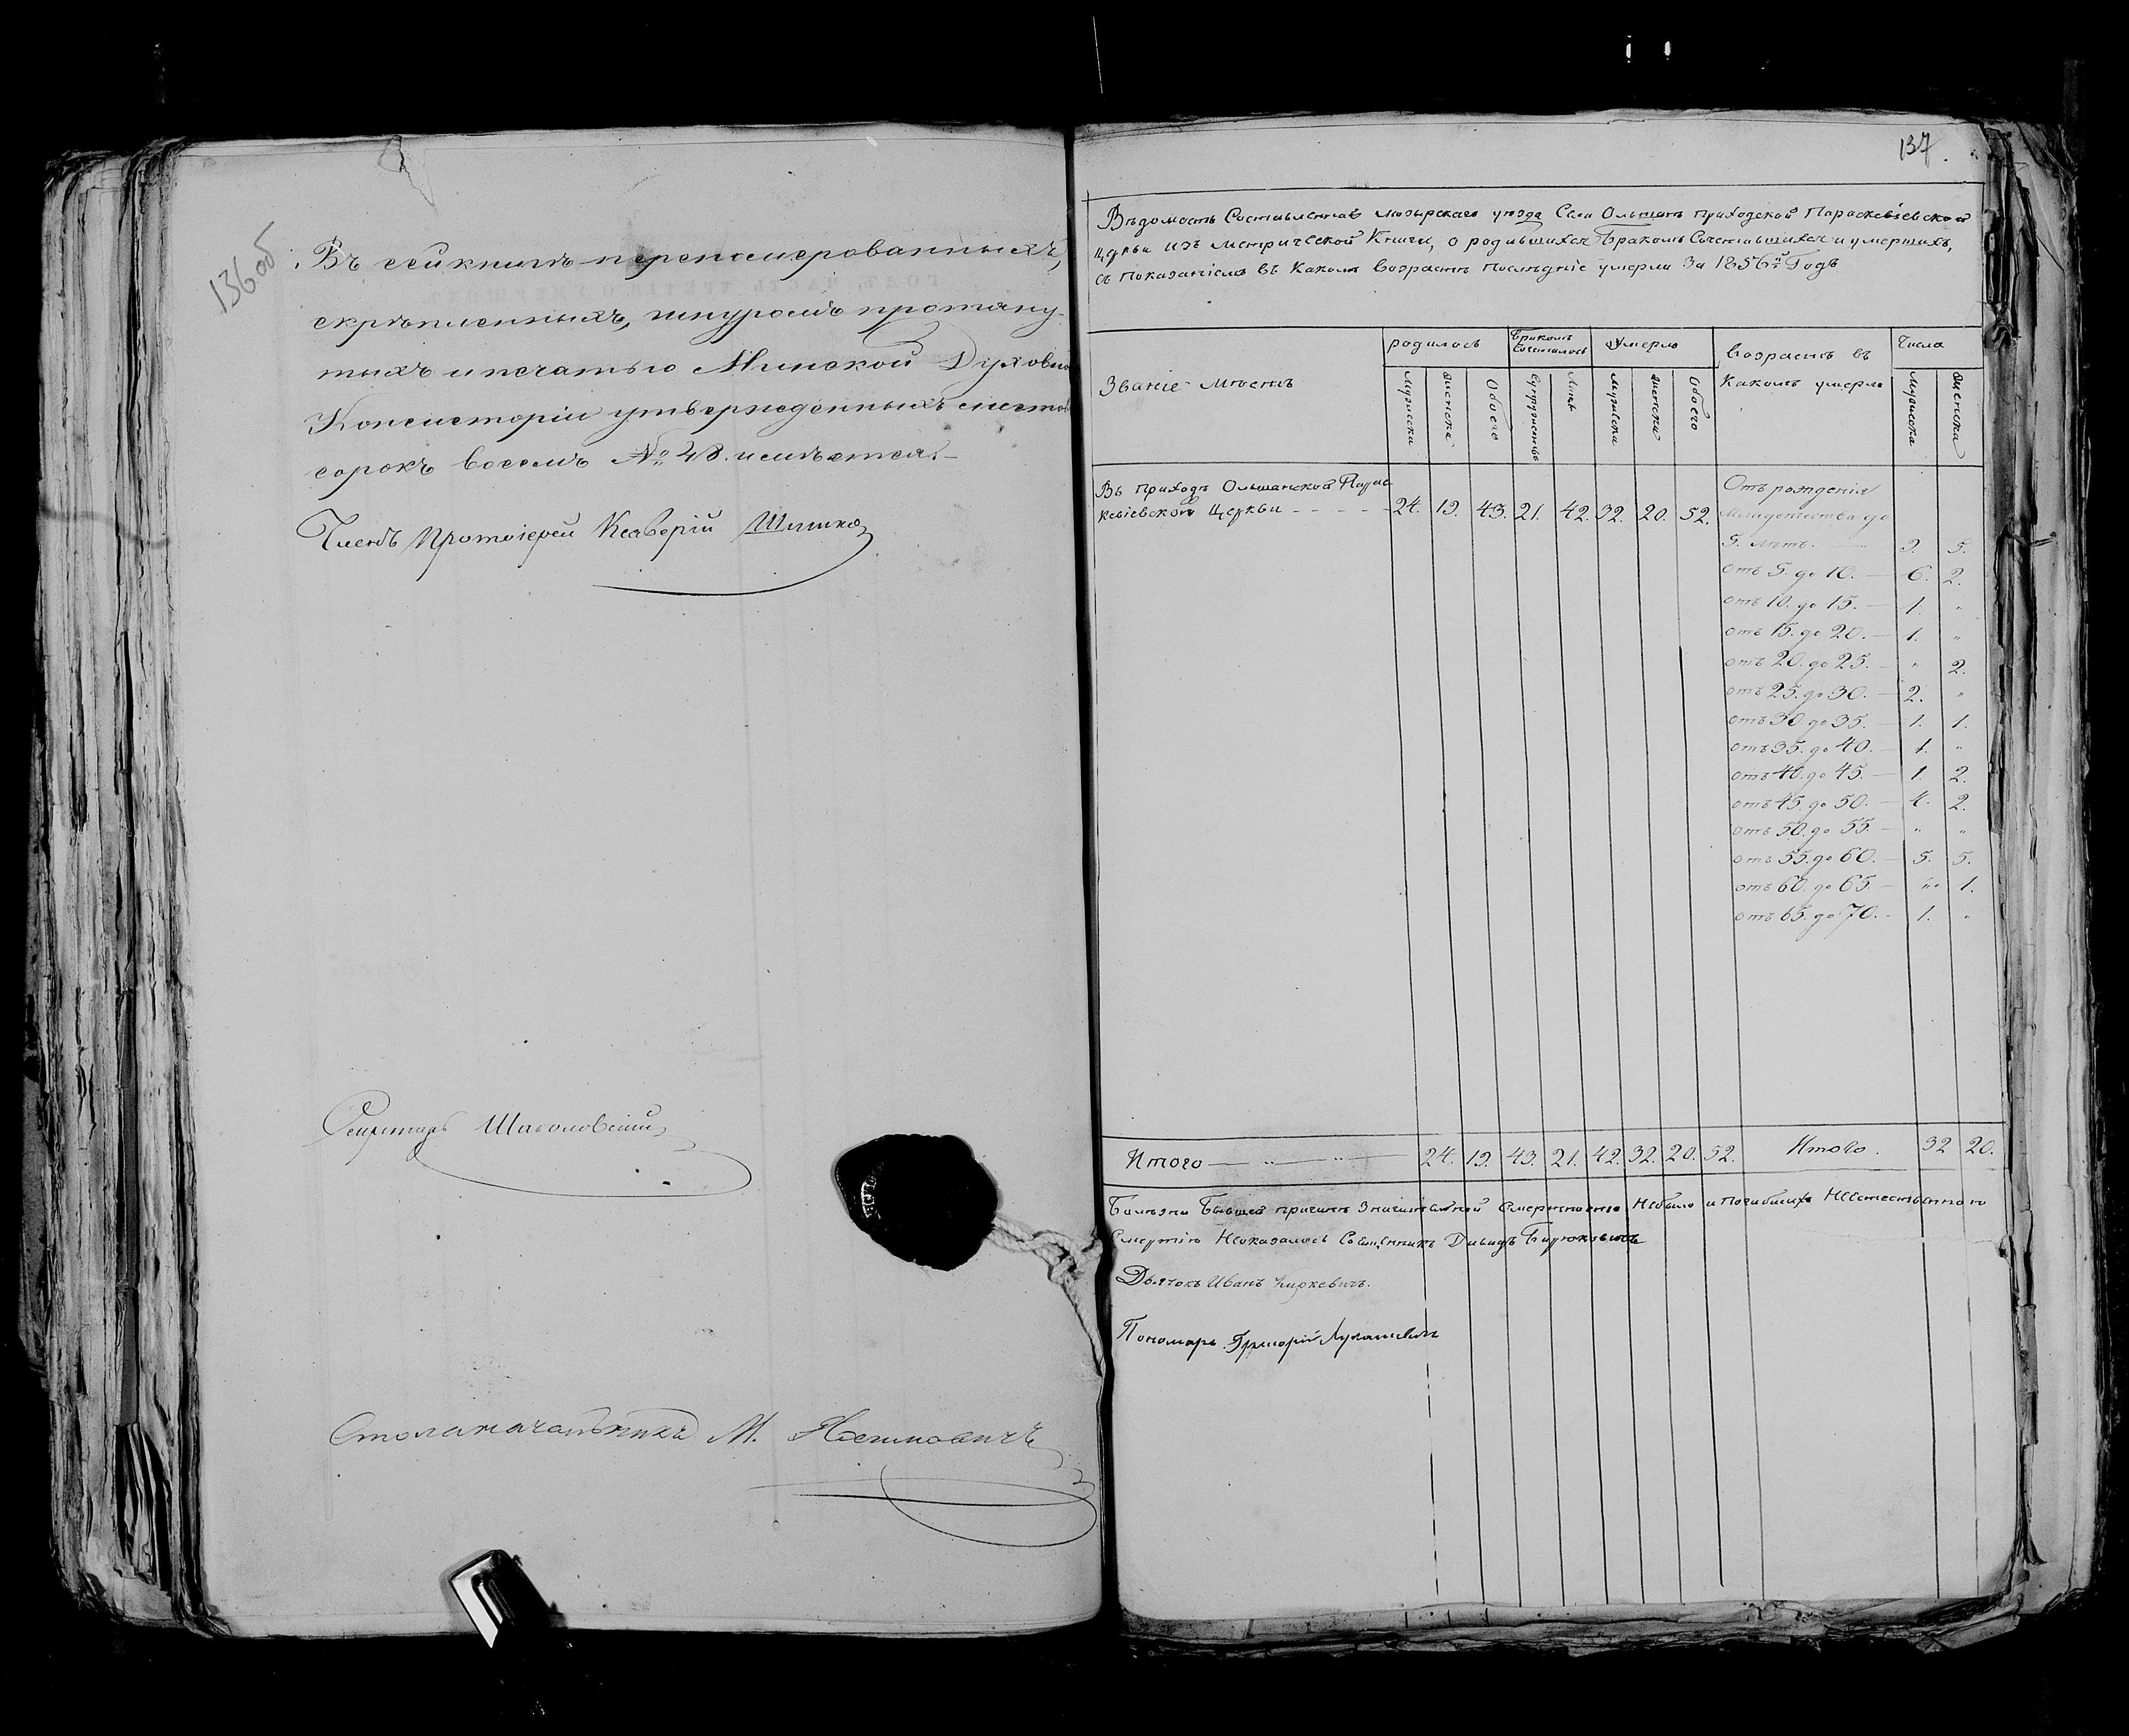 136об
Въ сей книгѣ перенумерованныхъ,
скрѣпленныхъ, шнуромъ протяну-
тыхъ и печатью Минской Духовно
Консисторіи утвержденныхъ листов
сорокъ восемь № 48. имѣется.
Членъ Протоіерей Ксаверій Шимко
Секретарь
Столоначальникъ М.
137.
Вѣдомость Составленная мозырскаго уѣзда Села Ольшанъ приходской Параскевіевской
церкви изъ метрической Книги, о родившихся Бракомъ Сочетавшихся и умершихъ,
съ показаніемъ въ Какомъ возрастѣ послѣдніе умерли За 1856й Годъ
Званіе мѣстъ
родилось
Бракомъ Сочеталось
Умерло
Возрастъ въ Какомъ умерли
Числа
мужеска
женска
Обоего
Супружествъ
Лицъ
мужеска
женска
Обоего
мужеска
женска
Въ приходѣ Ольшанской Парас
кевіевской Церкви - - - - - 24. 19. 43. 21. 42. 32. 20. 52.
Отъ рожденія
Младенчества до
5. лѣтъ. — 9. 5.
отъ 5. до 10. — 6. 2.
отъ 10. до 15. — 1. "
отъ 15. до 20. — 1. "
отъ 20. до 25. — " 2.
отъ 25. до 30. — 2. "
отъ 30. до 35. — 1. 1.
отъ 35. до 40. — 1. "
отъ 40. до 45. — 1. 2.
отъ 45. до 50. — 4. 2.
отъ 50. до 55. — " "
отъ 55. до 60. — 5. 5.
отъ 60. до 65. — " 1.
отъ 65. до 70. — 1. "
Итого — " — " — 24. 19. 43. 21. 42. 32. 20. 52. Итого. 32 20.
Болѣзни Бывшей причинѣ Значительной Смертности Небыло и погибшихъ Неестественною
Смертію Неоказалось Священникъ Давидъ Бируковичъ
Дьячокъ Иванъ
Пономарь Григорій Лукашевичъ